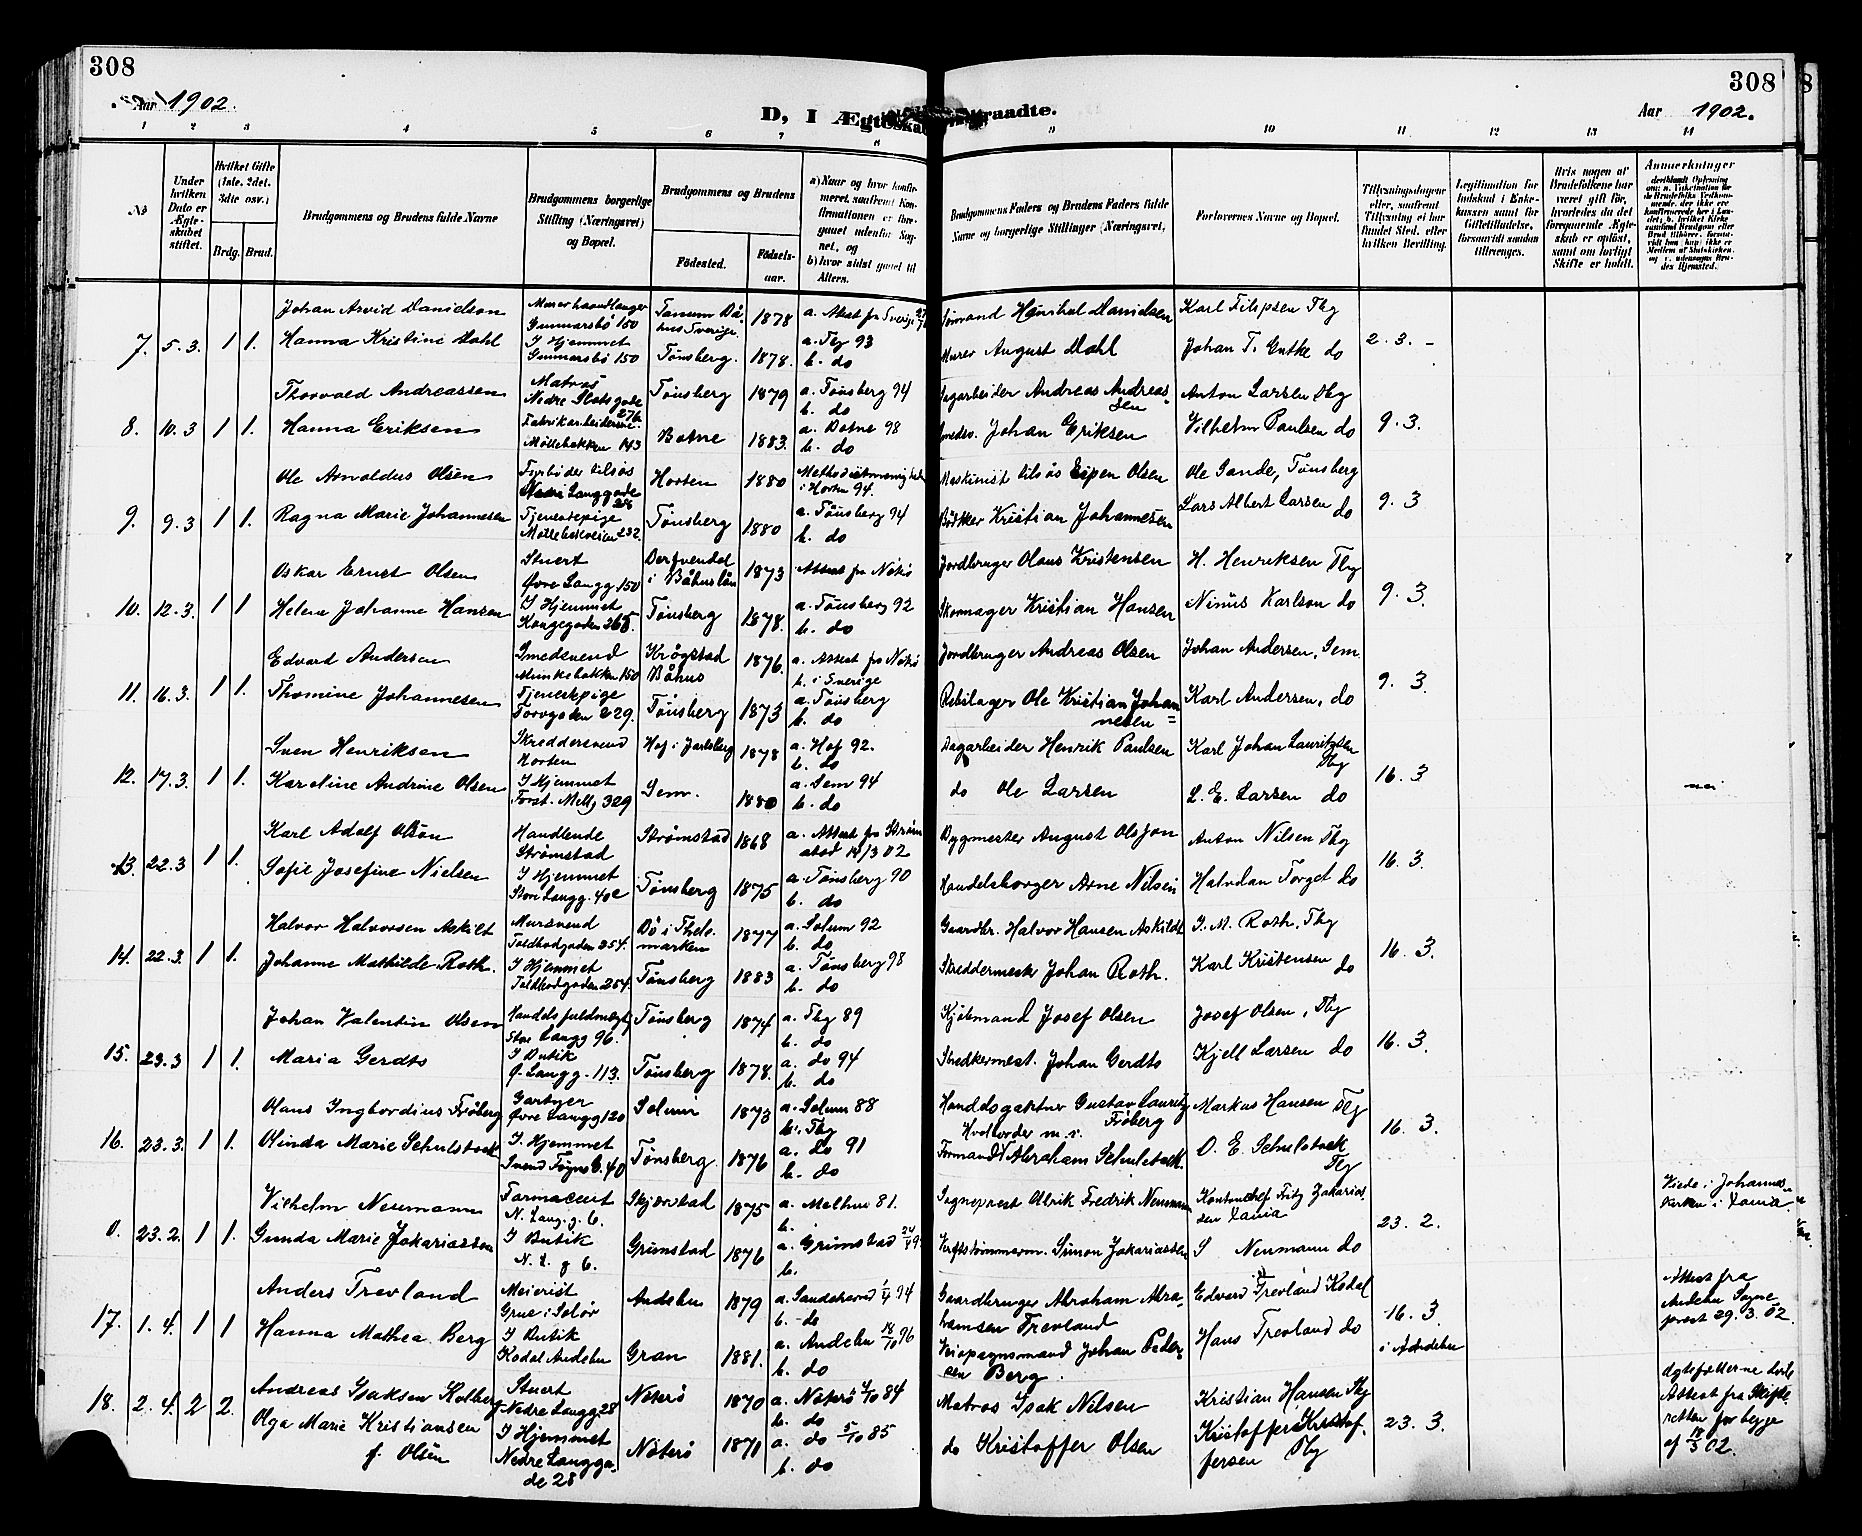 308
308
Aar 1902.
D, I Ægteskab
raadte.
Aar 1902.
1 2 3 4 5 6 7 8 9 10 11 12 13 14
No
Under hvilken Dato er Ægteskabet stiftet.
Hvilket Gifte (1ste, 2det, 3die osv.)
Brdg. Brud.
Brudgommens og Brudens fulde Navne
Brudgommens borgerlige Stilling (Næringsvei) og Bopæl.
Brudgommens og Brudens
Fødested.
Fødsels-aar.
a) Naar og hvor konfirmeret, saafremt Konfirmationen er foregaaet udenfor Sognet, og
b) hvor sidst gaaet til Alters.
Brudgommens Faders og Brudens Faders fulde Navne og borgerlige Stillinger (Næringsvei,
Forlovernes Navne og Bopæl.
Tillysningsdagene eller, saafremt Tillysning ei har fundet Sted, efter hvilken Bevilling.
Legitimation for Indskud i Enkekassen samt for Giftetilladelse, forsaavidt saadan tiltrænges.
Hvis nogen af Brudefolkene har været gift før, hvorledes da det foregaaende Ægteskab er opløst, samt om lovligt Skifte er holdt.
Anmærkninger
7. 5.3. 1 1. Johan Arvid Danielson Murerhaandlanger Gunnarsbö 150 Tanum Båhus Sverige 1878 a. Attest fr Sverige
Karl Filipsen Tbg 2.3. -
Hanna Kristine Dahl I Hjemmet Gunnarsbö 150 Tønsberg. 1878. a. Tbg 93 b. do
Murer August Dahl Johan T. Gutke do
8. 10.3 1 1. Thorvald Andreassen Matros Nedre Slotsgade 276 Tønsberg 1879 a. Tønsberg 94 b. do
Dagarbeider Andreas Andreassen Anton Larsen Tbg 9.3.
Hanna Eriksen Fabrikarbeiderske Møllebakken 143 Botne 1883. a. Botne 98 b. do
Johan Eriksen Vilhelm Paulsen do
9. 9.3 1 1. Ole Arnoldus Olsen Fyrbøder tilsøs Nedre Langgade Horten 1880 Methodistmenigheden i Horten 94.
Maskinist tilsøs Espen Olsen Ole Sande, Tønsberg 9.3
Ragna Marie Johannesen Tjenestepige Møllebakveien 232 Tønsberg 1880 a. Tønsberg 94 b. do
Bödtker Kristian Johannesen Lars Albert Larsen do
10. 12.3. 1 1 Oskar Ernst Olsen Stuert Øvre Langg. 150 i Båhuslän 1873 Attest fr Nøtö
Jordbruger Olaus Kristensen H. Henriksen Tbg 9.3.
Helene Johanne Hansen I Hjemmet Kongegaden 268. Tønsberg 1878. a. Tønsberg 92 b. do
Skomager Kristian Hansen Ninus Karlson do
11. 16.3. 1 1. Edvard Andersen Smedsvend Munkebakken 150 Krøgstad Båhus 1876. a. Attest fr Nøtö b. i Sverige
Jordbruger Andreas Olsen Johan Andersen, Sem. 9.3.
Thomine Johannesen Tjenestpige Torvgaden 229. Tønsberg 1873 a. Tønsberg b. do
Rebslager Ole Kristian Johannesen Karl Andersen, do
12. 17.3. 1 1. Sven Henriksen Skreddersvend Horten Hof i Jarlsberg 1878 a. Hof 92. b. do
Dagarbeider Henrik Paulsen Karl Johan Lauritzsen Tbg 16.3
Karoline Andrine Olsen I Hjemmet Forst. Mellg 329 Sem. 1880 a. Sem 94 b. do
do Ole Larsen L. E. Larsen do
13. 22.3 1 1. Karl Adolf Olsen Handlende Strømstad Strømstad 1868 a. Attest fra Strømstad 14/3 02
Bygmester August Olsson Anton Nilsen Tbg 16.3.
Sofie Josefine Nielsen I Hjemmet Store Langg. 40 c Tønsberg 1875 a. Tønsberg 90 b. do
Handelsborger Arne Nilsen Halvdan Torget do
14. 22.3. 1 1. Halvor Halvorsen Askilt Mursvend Toldbodgaden 254. Bö i Thelemarken 1877 a. Solum 92 b. do
Gaardbr. Halvor Hansen Askildt J. M. Roth, Tbg 16.3.
Johanne Mathilde Roth. I Hjemmet Toldbodgaden 254. Tønsberg 1883 a. Tønsberg 98 b. do
Skreddermester Johan Roth. Karl Kristensen do
15. 23.3 1 1. Johan Valentin Olsen Handelsfuldmægtig Store Langg 96. Tønsberg 1874 a. Tbg 89 b. do
Kjøbmand Josef Olsen Josef Olsen, Tbg 16.3.
Maria Gerdts I Butik Ø. Langg. 113. Tønsberg 1878. a. do 94 b. do
Johan Gerdts Kjell Larsen do
16. 23.3. 1 1. Olaus Ingbordius Frøberg Gartner Øvre Langg 120 Solum 1873 a. Solum 88 b. Tbg
Handelsgartner Gustav Lauritz Frøberg Markus Hansen Tbg 16.3.
Olinda Marie Schulstock I Hjemmet Svend Foyns G. 40 Tønsberg. 1876 a. do 91 b. do
Formand Abraham Schulstock. O. E. Schulstock Tbg
0. 23.2. 1 1. Vilhelm Neumann Farmaceut N. Lang. g. 6. Skjærstad 1875 a. Melhus 81. b.
Sogneprest Ulrik Fredrik Neumann Kontorchef Fritz Zakariassen Xania 23.2. Viede i Johanneskirken i Xania.
Gunda Marie Zakariassen I Butik N. L. g 6. Grimstad 1876 a. Grimstad b.
Verftstømmerm. Simon Zakariassen S Neumann do
17. 1.4. 1 1 Anders Trevland Meierist Grue i Solör Andebu 1879 a. Sandeherred b. do
Gaardbruger Abraham Abrahamsen Trevland Edvard Trevland Kodal 16.3 i Andebu Attest fra Andebu Sogneprest 29.3.02.
Hanna Mathea Berg I Butik Kodal Andebu Gran 1881. a. Andebu 18/10 96 b. do
Johan Pedersen Berg. Hans Trevland do
18. 2.4. 2 2. Andreas Isaksen Kolberg Stuert Nedre Langg 28 Nøterø 1870 a. Nøterø 84 b. do
Matros Isak Nilsen Kristian Hansen Tbg 23.3. Ægtefællerne Attest fra Skifteretten for begge af 18/3 02.
Olga Marie Kristiansen f. Olsen I Hjemmet Nedre Langgade 28 Nøterø 1871 a. do 5/10 85 b. do
do Kristoffer Olsen Kristoffer Kristoffersen Tbg